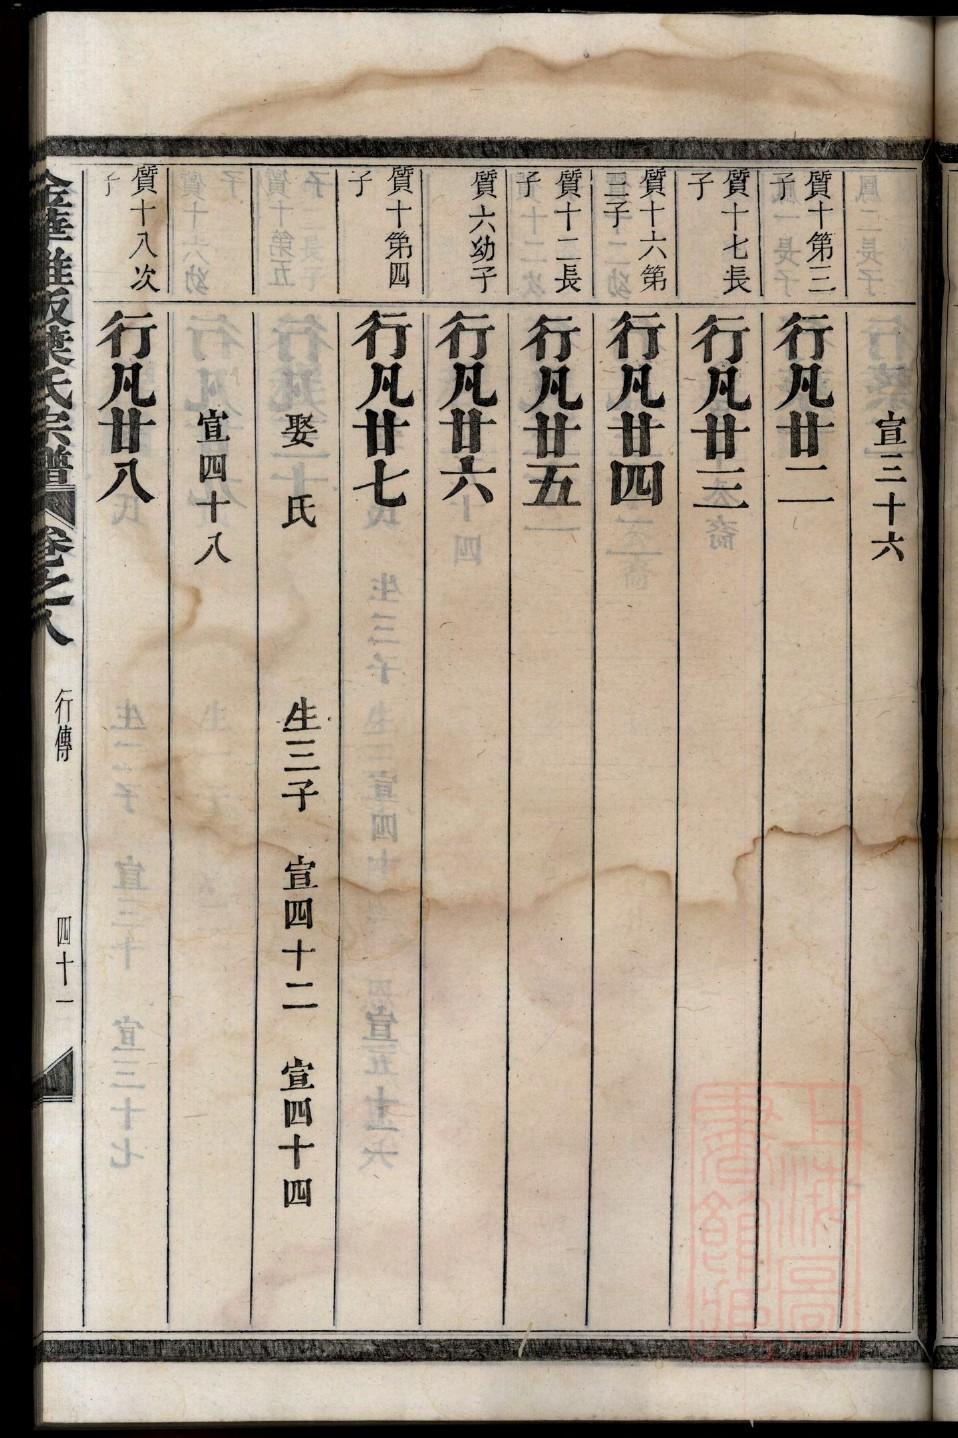 宣三十六
質十第三子
行凡廿二
質十七長子
行凡廿三
質十六第三子
行凡廿四
質十二長子
行凡廿五
質六幼子
行凡廿六
質十第四子
行凡廿七
娶 氏 生三子 宣四十二 宣四十四
宣四十八
質十八次子
行凡廿八
葉氏宗譜 卷之八 行傳 四十一
上海圖書館藏